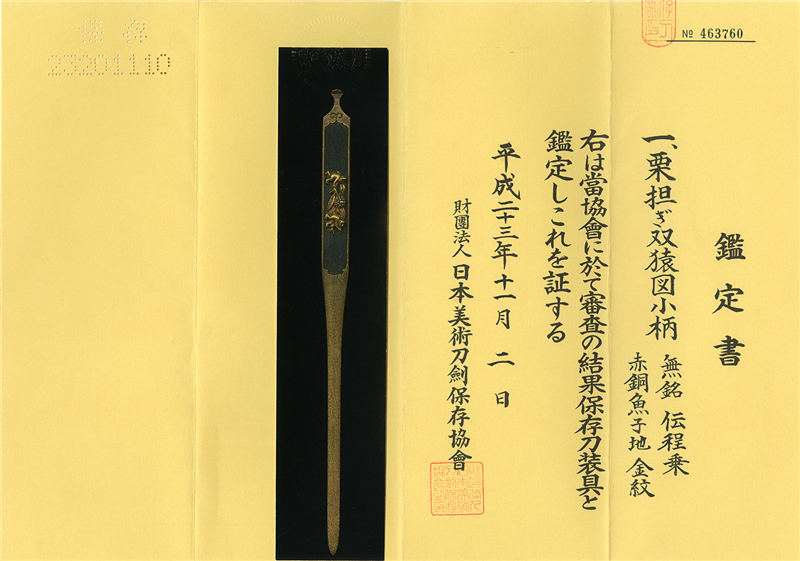 № 463760
鑑定書
一、栗担ぎ双猿図小柄
無銘 伝程乗
赤銅魚子地 金紋
右は當協會に於て審査の結果保存刀装具と
鑑定しこれを証する
平成二十三年十一月二日
財團法人 日本美術刀劍保存協會
保存
23201110